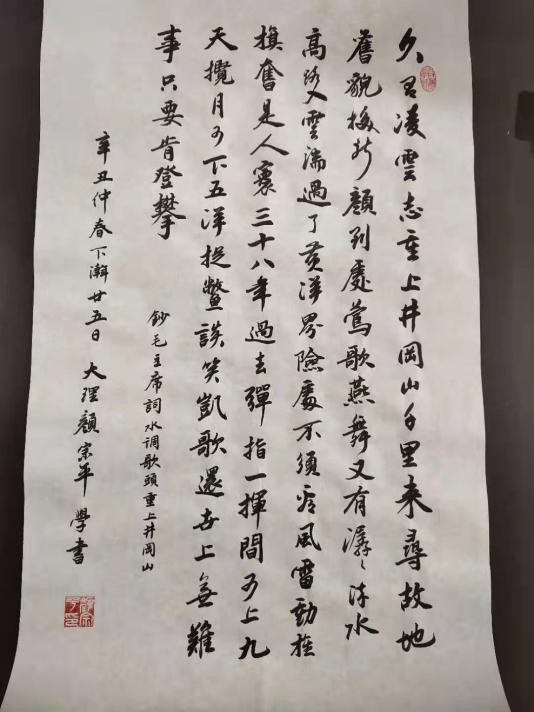 久有凌雲志重上井岡山千里来尋故地
舊貌換新顔到處鶯歌燕舞又有潺〻流水
高路入雲端過了黄洋界險處不須看風雷動旌
旗奮是人寰三十八年過去彈指一揮間可上九
天攬月可下五洋捉鱉談笑凱歌還世上無難
事只要肯登攀
鈔毛主席詞水调歌頭重上井岡山
辛丑仲春下澣廿五日 大理顔宗平學書